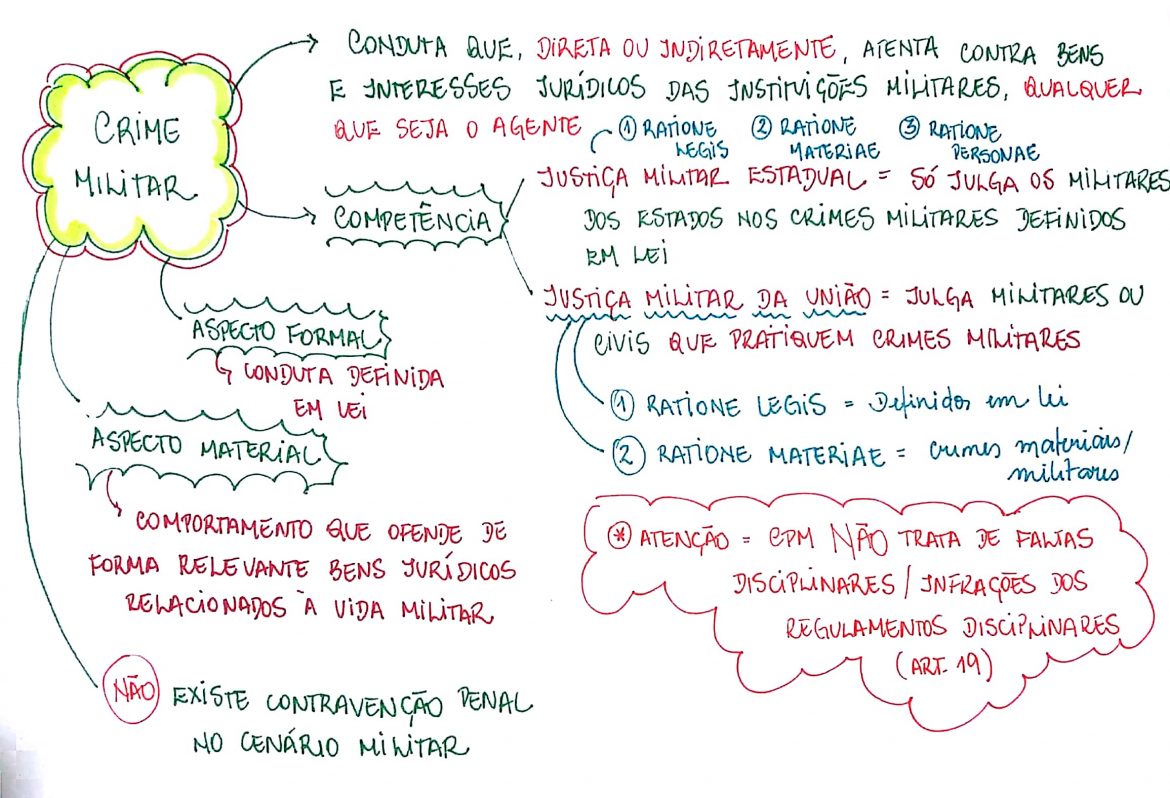 CRIME
MILITAR
CONDUTA QUE, DIRETA OU INDIRETAMENTE, ATENTA CONTRA BENS
E INTERESSES JURÍDICOS DAS INSTITUIÇÕES MILITARES, QUALQUER
QUE SEJA O AGENTE
① RATIONE
LEGIS
② RATIONE
MATERIAE
③ RATIONE
PERSONAE
COMPETÊNCIA
JUSTIÇA MILITAR ESTADUAL = SÓ JULGA OS MILITARES
DOS ESTADOS NOS CRIMES MILITARES DEFINIDOS
EM LEI
JUSTIÇA MILITAR DA UNIÃO = JULGA MILITARES OU
CIVIS QUE PRATIQUEM CRIMES MILITARES
① RATIONE LEGIS = Definidos em lei
② RATIONE MATERIAE = crimes materiais/
militares
ASPECTO FORMAL
CONDUTA DEFINIDA
EM LEI
ASPECTO MATERIAL
COMPORTAMENTO QUE OFENDE DE
FORMA RELEVANTE BENS JURÍDICOS
RELACIONADOS À VIDA MILITAR
* ATENÇÃO = CPM NÃO TRATA DE FALTAS
DISCIPLINARES/INFRAÇÕES DOS
REGULAMENTOS DISCIPLINARES
(ART. 19)
NÃO EXISTE CONTRAVENÇÃO PENAL
NO CENÁRIO MILITAR